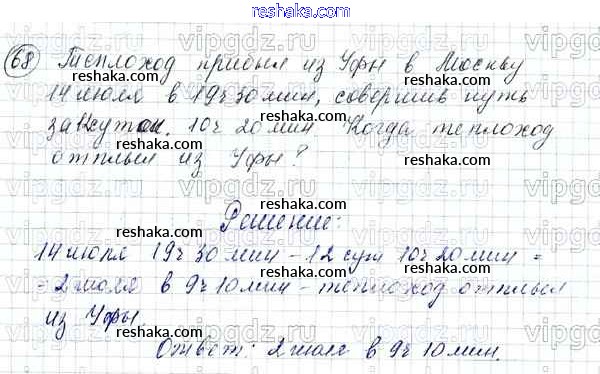 68 Теплоход прибыл из Уфы в Москву
14 июля в 19ч 30 мин, совершив путь
за 12 суток. 10ч 20 мин Когда теплоход
отплыл из Уфы?
Решение:
14 июля 19ч 30 мин - 12 сут 10ч 20 мин =
= 2 июля в 9ч 10 мин - теплоход отплыл
из Уфы.
Ответ: 2 июля в 9ч 10 мин.
reshaka.com
vipgdz.ru